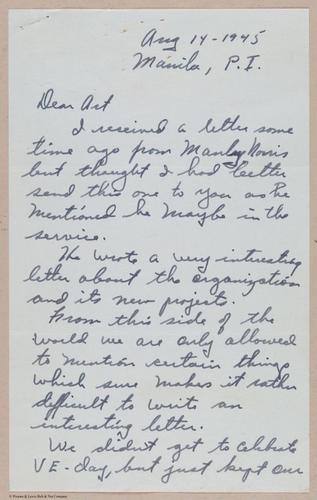 Aug 14-1945
Manila, P.I.
Dear Art
I received a letter some
time ago from Manley Norris
but thought I had better
send this one to you as he
mentioned he maybe in the
service.
He wrote a very interesting
letter about the organization
and its new projects.
From this side of the
world we are only allowed
to mention certain things
which sure makes it rather
difficult to write an
interesting letter.
We didn't get to celebrate
VE-day, but just kept our